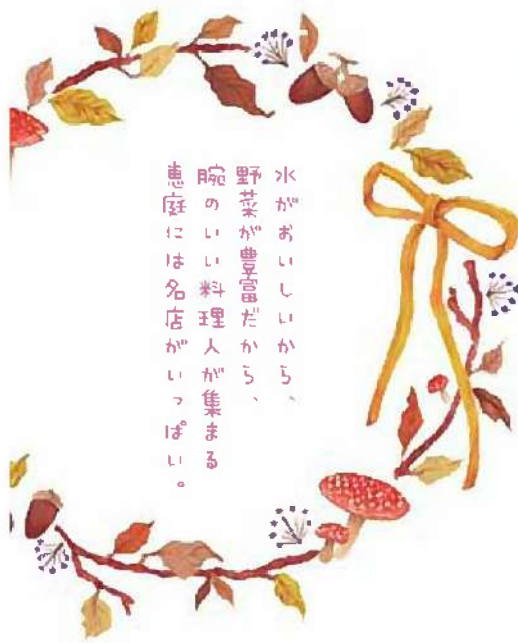 水がおいしいから、
野菜が豊富だから、
腕のいい料理人が集まる
恵庭には名店がいっぱい。